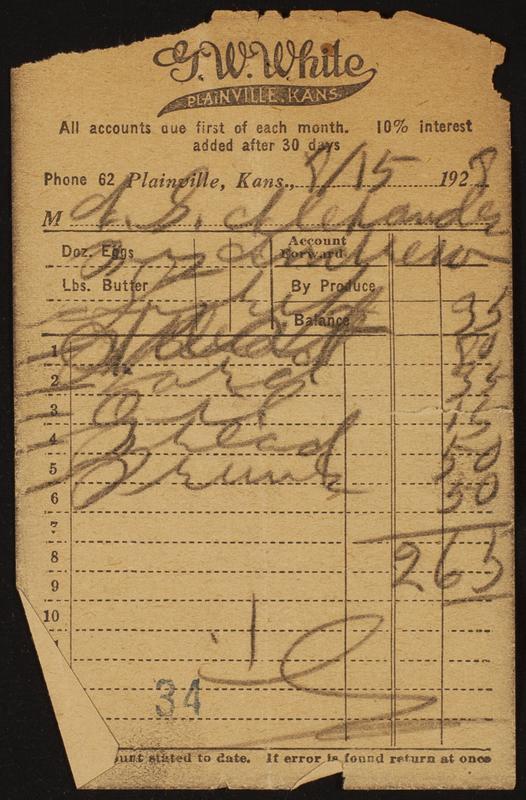 G. W. White
PLAINVILLE, KANS.
All accounts due first of each month. 10% interest
added after 30 days
Phone 62 Plainville, Kans., 8/15 1928
M A. G. Alexander
Doz. Eggs Account Forward
Lbs. Butter By Produce
Balance 35
1 80
2 Lard 35
3 15
4 Bread 50
5 Prunes 50
6
7
8 265
9
10
34
ount stated to date. If error is found return at once